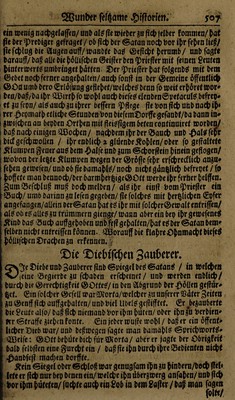 Wunder seltzame Historien. 507
ein wenig nachgelassen/ und als sie wieder zu sich selber kommen/ hat
sie der Prediger gefraget/ ob sich der Satan noch vor ihr sehen ließ/
sie schlug die Augen auff/ wandte das Gesicht herumb/ und sagte
darauf/ daß alle die höllischen Geister den Priester mit seinen Leuten
hinterwerts umbringet hätten. Der Priester hat folgends mit dem
Gebet noch ferner angehalten/ auch sonst in der Gemeine öffentlich
GOtt und dero Erlösung gebethen/ welches denn so weit erhöret wor-
den/ daß/ da der Wirth so wohl auch dieses elenden Spectaculs befrey-
et zu seyn/ als auch zu ihrer bessern Pflege sie von sich und nach ih-
rer Heymath etliche Stunden von seinem Dorffe gesandt/ da dann in-
zwischen an beyden Orten mit fleissigem beten continuiret worden/
daß nach einigen Wochen/ nachdem ihr der Bauch und Hals sehr
dick geschwollen/ ihr endlich glüende Kohlen/ oder so gestallte
Klumpen Feuer aus dem Halse und zum Schorstein hinein geflogen/
wovon der letzte Klumpen wegen der Grösse sehr erschrecklich anzu-
sehen gewesen/ und ob sie darmahls/ noch nicht gäntzlich befreyet/ so
hoffet man dennoch/ der barmhertzige GOtt werde ihr ferner helffen.
Zum Beschluß muß doch melden/ als ihr einst vom Priester ein
Buch/ und darinn zu lesen gegeben/ sie solches mit hertzlichen Eyfer
angefangen/ allein der Satan hat es ihr mit solcher Gewalt entrissen/
als ob es alles zu trümmern gienge/ wann aber ein der ihr gewesenes
Kind das Buch auffgehoben und fest gehalten/ hat es der Satan dem-
selben nicht entreissen können. Woraus die klahre Ohnmacht dieses
höllischen Drachen zu erkennen.
Die Diebischen Zauberer.
DIe Diebe und Zauberer sind Spiegel des Satans/ in welchen
eine Begierde zu schaden erscheinet/ und werden endlich/
durch die Gerechtigkeit GOttes/ in den Abgrund der Höllen gestür-
tzet. Ein solcher Gesell war Morta/ welcher zu unserer Väter Zeiten
zu Genff sich auffgehalten/ und viel Ubels gestifftet. Er bezauberte
die Leute also/ daß sich niemand vor ihm hüten/ oder ihn zu verdien-
ter Straffe ziehen konte. Ein jeder wuste wohl/ daß er ein öffent-
licher Dieb war/ und deßwegen sagte man damahls Sprichworts-
Weise: GOtt behüte dich für Morta/ aber er jagte der Obrigkeit
bald selbsten eine Furcht ein/ daß sie ihn durch ihre Bedienten nicht
Handfest machen dorffte.
Kein Siegel oder Schloß war genugsam ihn zu hindern/ doch stel-
lete er sich nur bey denen ein/ welche ihn überzwerg ansahen/ und sich
vor ihm hüteten/ suchte auch ein Lob in dem Laster/ daß man sagen
solte/